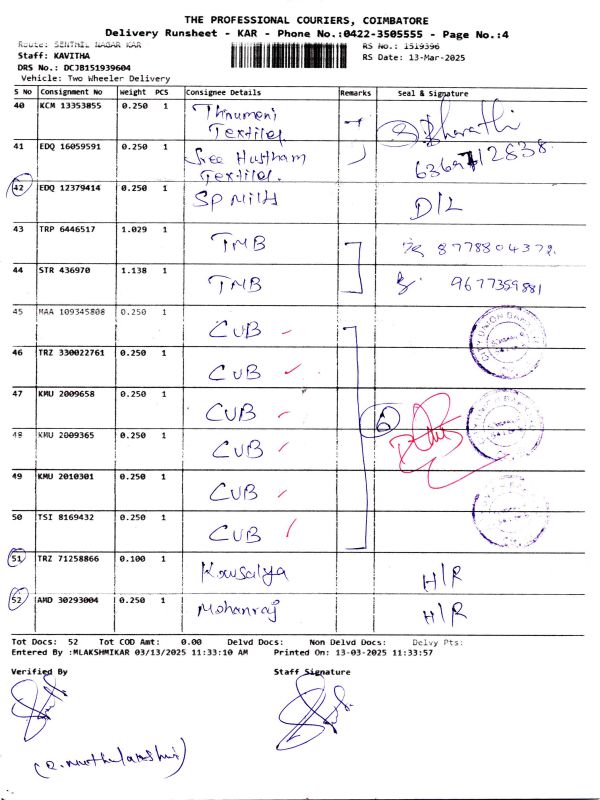 THE PROFESSIONAL COURIERS, COIMBATORE
Delivery Runsheet - KAR - Phone No.:0422-3505555 - Page No.:4
Route: SENTHIL NAGAR KAR
RS No.: 1519396
Staff: KAVITHA
RS Date: 13-Mar-2025
DRS No.: DCJB151939604
Vehicle: Two Wheeler Delivery
S No Consignment No Weight PCS Consignee Details Remarks Seal & Signature
40 KCM 13353855 0.250 1 Textiles S. Bharathi
41 EDQ 16059591 0.250 1 Sree Textiles.
42 EDQ 12379414 0.250 1 SP Mills D/L
43 TRP 6446517 1.029 1 TMB 8778804372
44 STR 436970 1.138 1 TMB 9677359881
45 MAA 109345808 0.250 1 CUB
46 TRZ 330022761 0.250 1 CUB
47 KMU 2009658 0.250 1 CUB 6
48 KMU 2009365 0.250 1 CUB
49 KMU 2010301 0.250 1 CUB
50 TSI 8169432 0.250 1 CUB
51 TRZ 71258866 0.100 1 Kowsalya H/R
52 AMD 30293004 0.250 1 Mohanraj H/R
Tot Docs: 52 Tot COD Amt: 0.00 Delvd Docs: Non Delvd Docs: Delvy Pts:
Entered By :MLAKSHMIKAR 03/13/2025 11:33:10 AM Printed On: 13-03-2025 11:33:57
Verified By Staff Signature